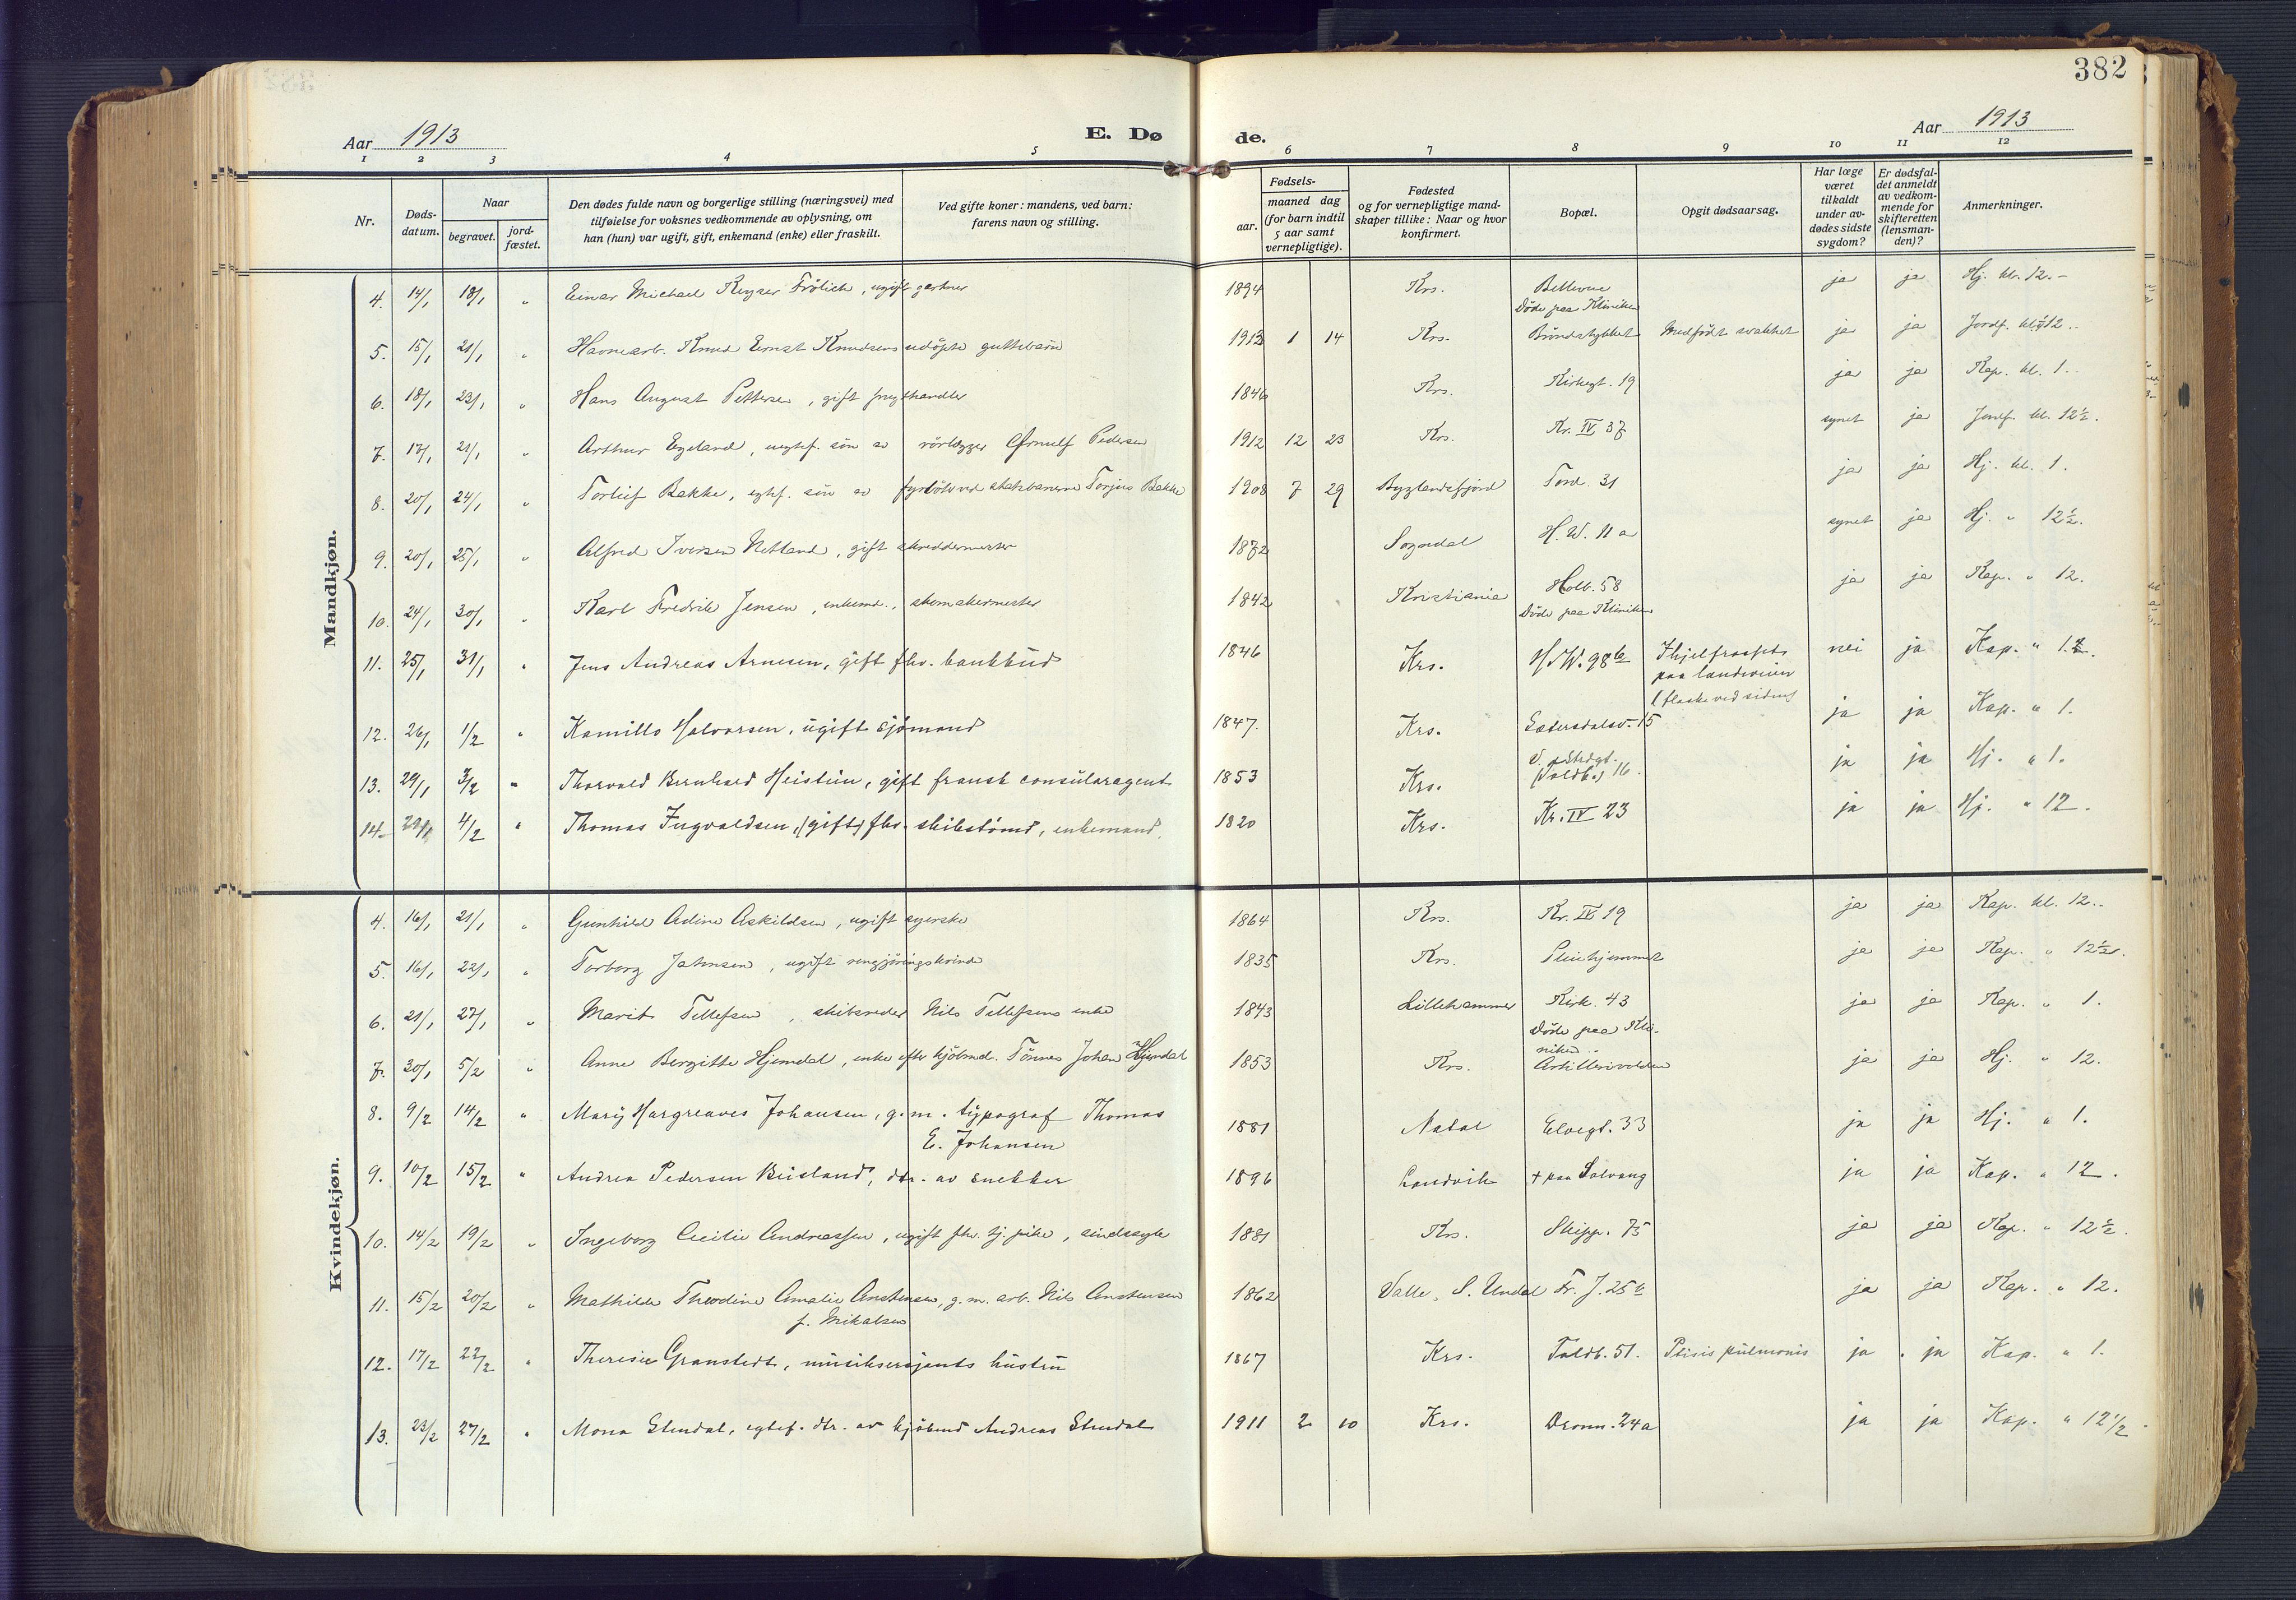 382
Aar 1913
E. Dø
de.
Aar 1913
1 2 3 4 5 6 7 8 9 10 11 12
Nr.
Døds-
datum.
Naar
begravet.
jord-
fæstet.
Den dødes fulde navn og borgerlige stilling (næringsvei) med
tilføielse for voksnes vedkommende av oplysning, om
han (hun) var ugift, gift, enkemand (enke) eller fraskilt.
Ved gifte koner: mandens, ved barn:
farens navn og stilling.
Fødsels-
aar.
maaned dag
(for barn indtil
5 aar samt
vernepligtige).
Fødested
og for vernepligtige mand-
skaper tillike: Naar og hvor
konfirmert.
Bopæl.
Opgit dødsaarsag.
Har læge
været
tilkaldt
under av-
dødes sidste
sygdom?
Er dødsfal-
det anmeldt
av vedkom-
mende for
skifteretten
(lensman-
den)?
Anmerkninger.
Mandkjøn.
4. 14/1 18/1 " Einar Michael Keyser Frölich, ugift gartner 1894 Krs. Bellevue ja ja Hj. kl. 12.-
Döde paa Kliniken
5. 15/1 21/1 " Havnearb. Knud Ernst Knudsens udöpte guttebarn 1913 1 14 Krs. Bründstykket Medfödt svakhet ja ja Jordf. kl. 12..
6. 18/1 23/1 " Hans August Pettersen, gift frugthandler 1846 Krs. Kirkegt. 19 ja ja Kap. kl. 1..
7. 17/1 21/1 " Arthur Egeland, uegtef. sön av rörlægger Ørnulf Pedersen 1912 12 23 Krs. Kr. IV 37 synet ja Jordf. kl. 12½.
8. 20/1 24/1 " Torleif Bakke, egtef. sön av fyrböter ved statsbanerne Torjus Bakke 1908 7 29 Byglandsfjord Tord. 31 ja ja Hj. kl. 1.
9. 20/1 25/1 " Alfred Iversen Netland, gift skreddermester 1872 Sogndal H.W. 11 a synet ja Hj. " 12½.
10. 24/1 30/1 " Karl Fredrik Jensen, enkemd., skomakermester 1842 Kristiania Holb. 58 ja ja Kap. " 12.
Döde paa Kliniken
11. 25/1 31/1 " Jens Andreas Arnesen, gift fhv. bankbud 1846 Krs. H.W. 98 b Ihjelfrosset nei ja Kap. "
paa landeveien
(flaske ved siden)
12. 26/1 1/2 " Kamillo Halvorsen, ugift sjömand 1847. Krs. Sætersdalsv. 15 ja ja Kap. " 1.
13. 29/1 3/2 " Thorvald Bernhard Heistein, gift fransk consularagent 1853 Krs. V. Strdgt.
(Toldb.) 16. ja ja Hj. " 1.
14. 29/1 4/2 " Thomas Ingvaldsen, (gift) fhv. skibstömd, enkemand. 1820 Krs. Kr. IV 23 ja ja Hj. " 12.
Kvindekjøn.
4. 16/1 21/1 " Gunhild Adine Askildsen, ugift syerske 1864 Krs. Kr. IV 19 ja ja Kap. kl. 12..
5. 16/1 22/1 " Torborg Jahnsen, ugift rengjöringskvinde 1835 Krs. Pleiehjemmet ja ja Kap. " 12½.
6. 21/1 27/1 " Marit Tellefsen, skibsreder Nils Tellefsens enke 1843 Lillehammer Kirk. 43 ja ja Kap. " 1.
Döde paa Kli-
niken..
7. 30/1 5/2 " Anne Bergitte Hjemdal, enke efter kjöbmd. Tönnes Johan Hjemdal 1853 Krs. Artillerivolden ja ja Hj. " 12.
8. 9/2 14/2 " Mary Hargreaves Johansen, g. m. typograf Thomas
E. Johansen 1881 Natal Elvegt. 33 ja ja Hj. " 1.
9. 10/2 15/2 " Andrea Pedersen Beisland, dtr. av snekker 1896 Landvik + paa Solvang ja ja Kap. " 12.
10. 14/2 19/2 " Ingeborg Cecilie Andreassen, ugift fhv. tj. pike, sindssyk 1881 Krs. Skipp. 75 ja ja Kap. " 12½.
11. 15/2 20/2 " Mathilde Theodine Amalie Anstensen, g. m. arb. Nils Anstensen
f. Mikalsen 1862 Valle, S. Undal Fr. J. 25 b ja ja Kap. " 12.
12. 17/2 22/2 " Theresie Granstedt, musiksersjants hustru 1867 Krs. Toldb. 51. Ptisis pulmonis ja ja Kap. " 1.
13. 23/2 27/2 " Mona Stendal, egtef. dtr. av kjöbmd Andreas Stendal 1911 2 10 Krs. Dronn. 24a ja ja Kap. " 12 1/2